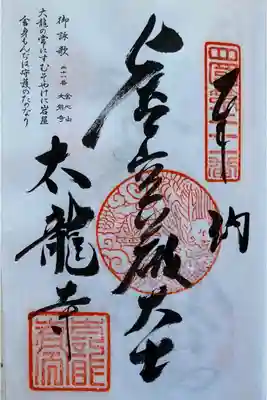 四国第二十一番
奉納
虚空蔵大士
太龍寺
御詠歌
舎心山
太龍寺
太龍の常にすむぞやげに岩屋
舎身もんぢは守護のためなり